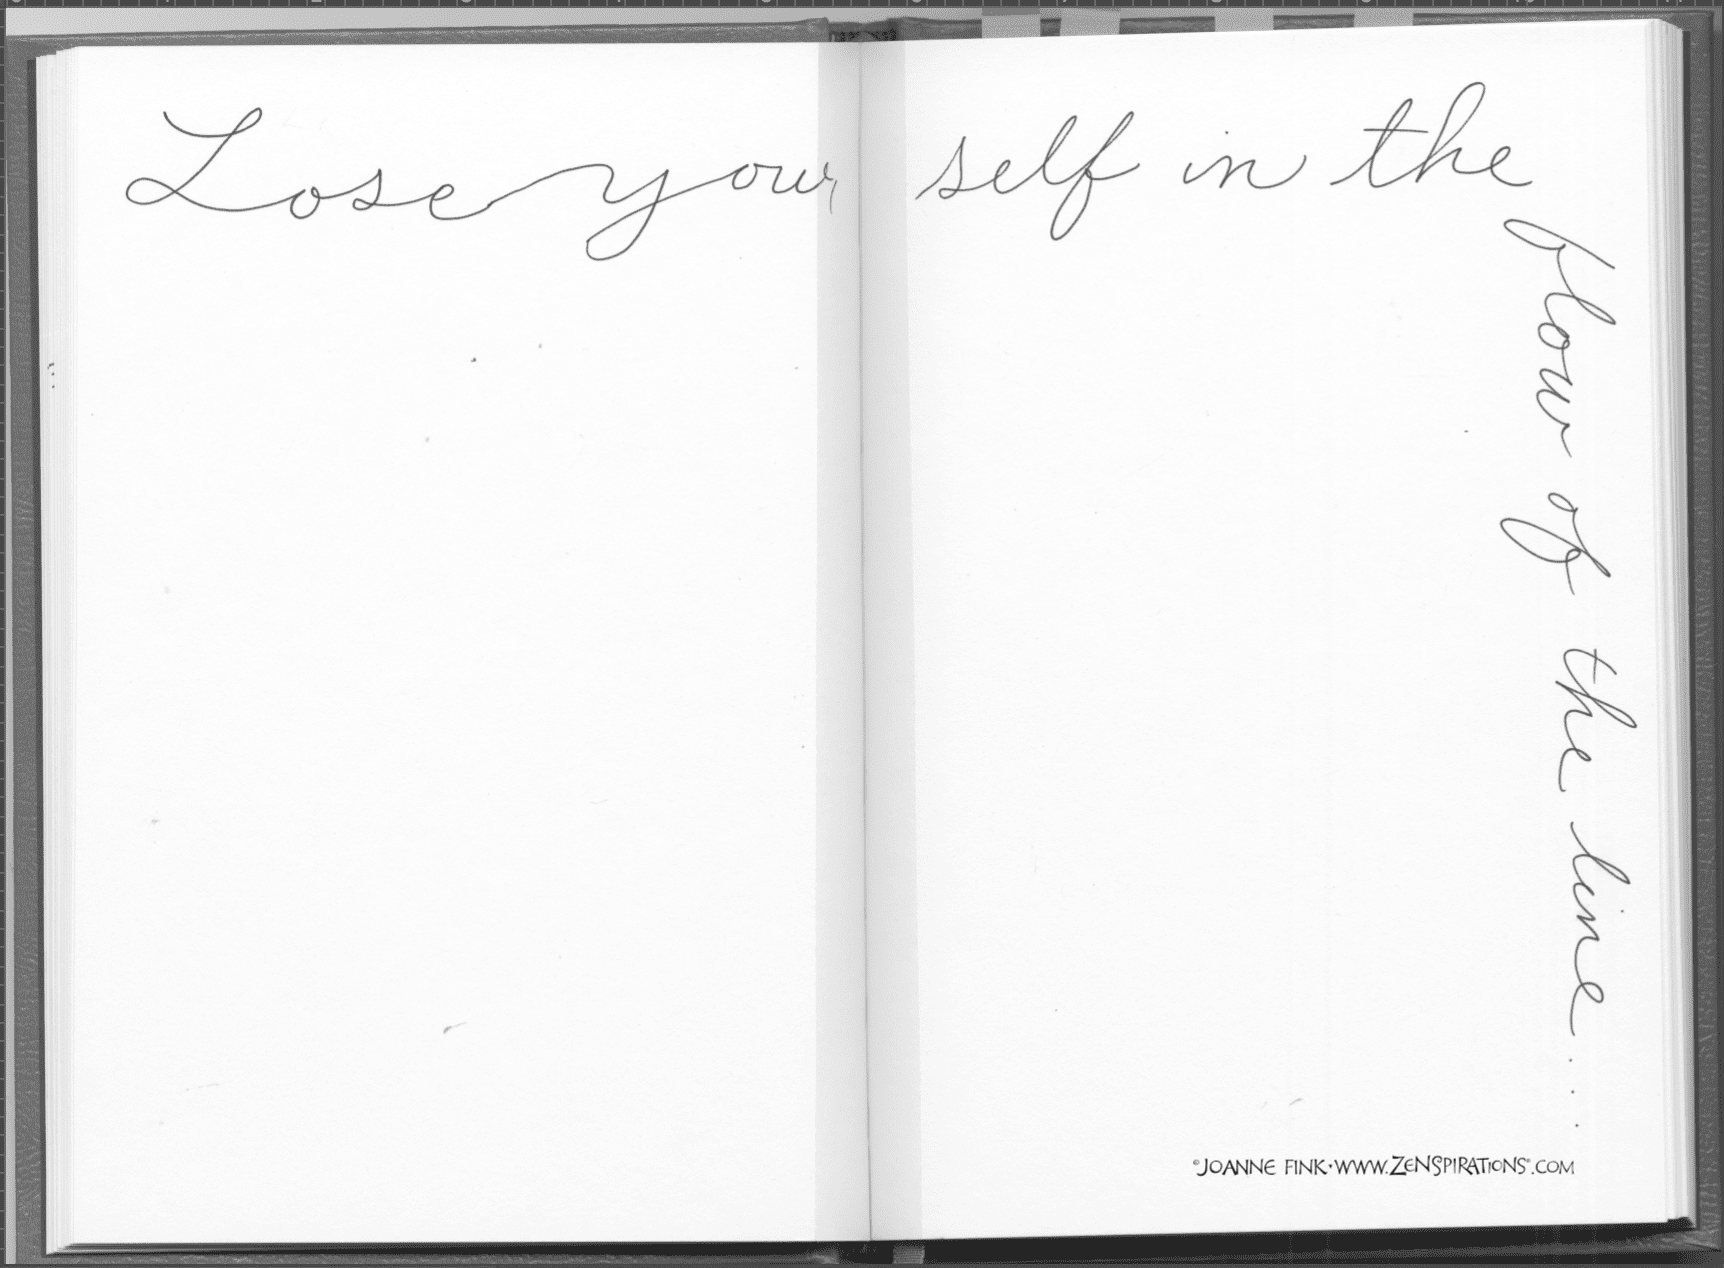 Lose your self in the
flow of the line...
©JOANNE FINK•WWW.ZENSPIRATIONS®.COM